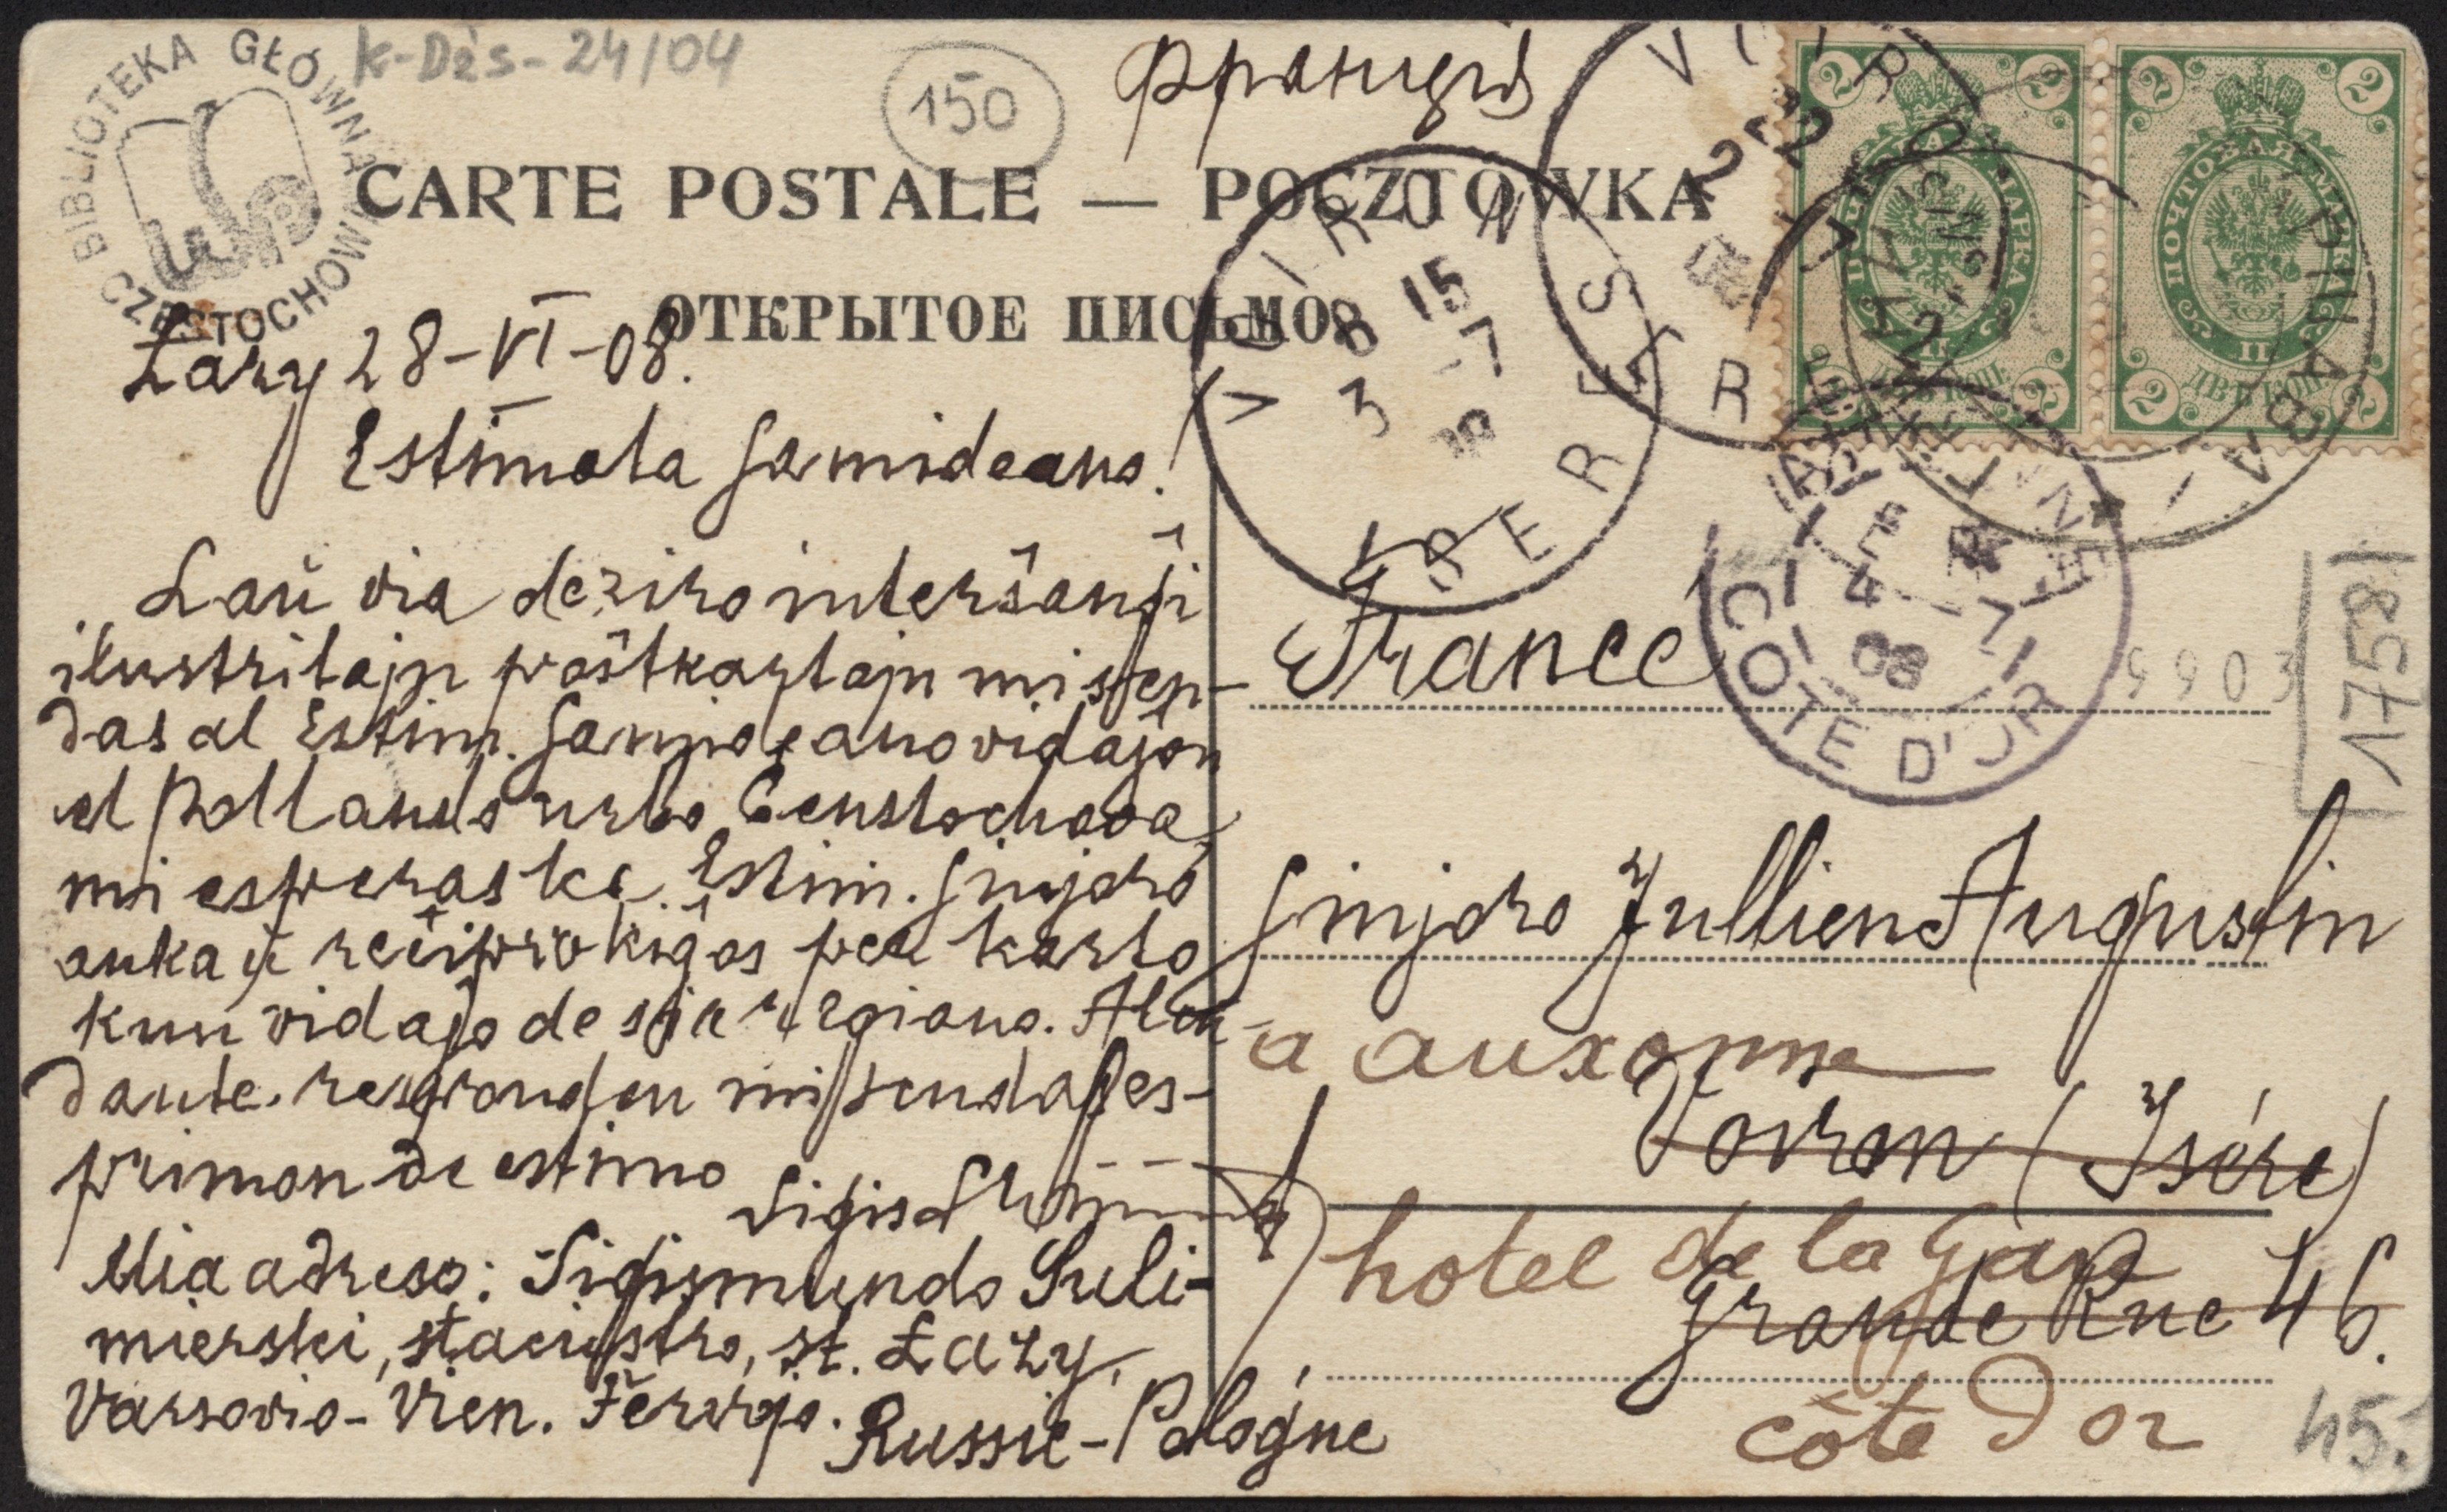 BIBLIOTEKA GŁÓWNA
WSP
CZĘSTOCHOWA
K-Dźs-24/04
150
Франція
CARTE POSTALE — POCZTÓWKA
ОТКРЫТОЕ ПИСЬМО.
Łazy 28-VI-08.
Estimata samideano!
Laŭ via deziro interŝanĝi
ilustritajn poŝtkartojn mi sen-
das al Estim. Samideano vidaĵon
el Pollanda urbo Ĉenstochova,
mi esperas ke Estim. sinjoro
ankaŭ reciprokigos per karto
kun vidaĵo de sia regiono. Aten-
dante respondon mi sendas es-
primon de estimo
Mia adreso: Sigismundo Suli-
mierski, staciestro, st. Łazy,
Varsovio-Vien. Fervojo.
Russie-Pologne
VOIRON
8 15
3 -7
08
ISERE
ПОЧТОВАЯ МАРКА
2 2
II
ДВѢ КОП.
2 2
ПОЧТОВАЯ МАРКА
2 2
II
ДВѢ КОП.
2 2
AUXONNE
4 -7
08
COTE D'OR
France
9903
1758
Sinjoro Jullien Augustin
a auxonne
Voiron (Isére)
hotel de la Gare
Grande Rue 46.
côte D or
45.-